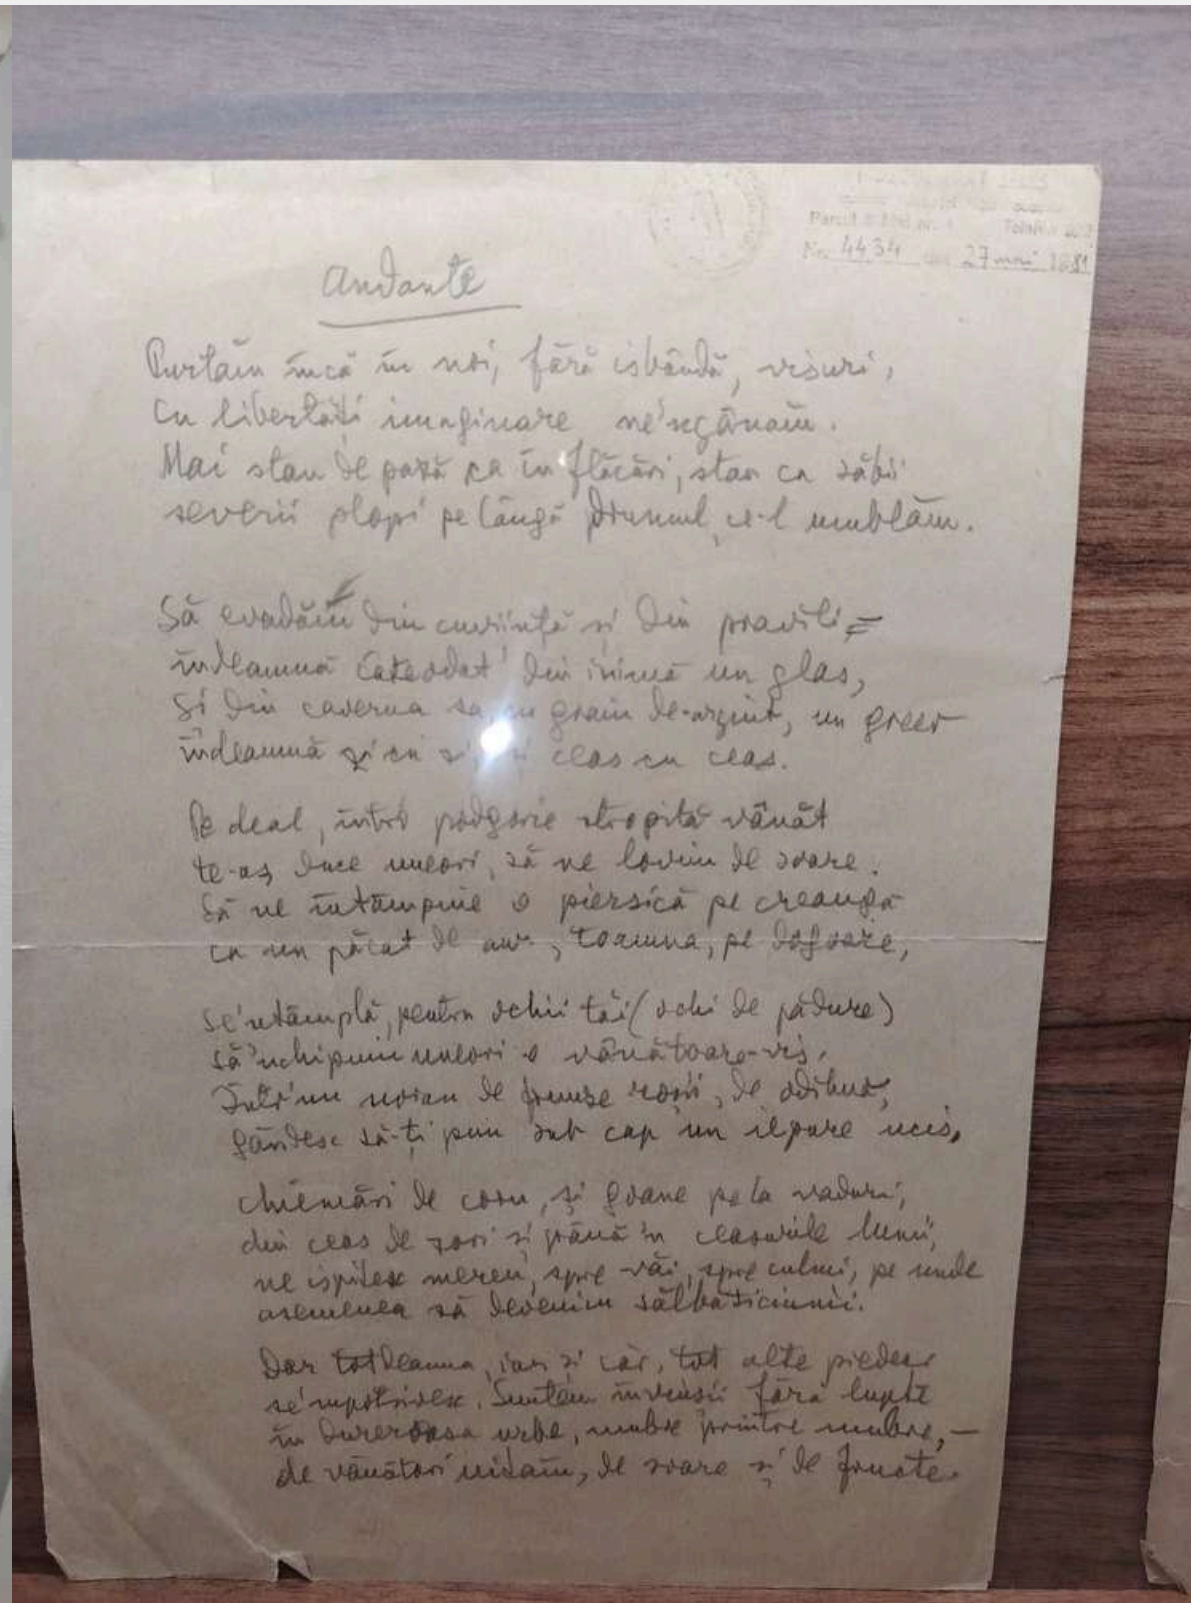 Andante
Nr. 4434 27 mai 1981
Purtăm încă în noi, fără isbândă, visuri,
cu libertăți imaginare ne'ngânăm.
Mai stau de pază ca în flăcări, stau ca săbii
severii plopi pe lângă drumul ce-l umblăm.
Să evadăm din cuviință și din pravili =
îndeamnă câteodat' din inimă un glas,
Și din caverna sa, cu graiu de-argint, un greer
îndeamnă și cu ceas cu ceas.
Pe deal, într'o podgorie stropită vânăt
te-aș duce uneori, să ne lovim de soare.
Să ne întâmpine o piersică pe creangă
ca un păcat de aur, toamna, pe dogoare,
Se'ntâmplă, pentru ochii tăi (ochi de pădure)
să'nchipui uneori o vânătoare-vis.
Într'un noian de frunze roșii, de odihnă,
gândesc să-ți pun sub cap un iepure ucis,
Chiemări de corn, și goane pe la vaduri,
din ceas de zori și până'n ceasurile lunii,
ne ispitesc mereu, spre văi, spre culmi, pe unde
asemenea să devenim sălbăticiunii.
Dar totdeauna, iar și iar, tot alte piedeci
se'mpotrivesc. Suntem învinșii fără lupte
în dureroasa urbe, umbre printre umbre, –
de vânători uităm, de soare și de fructe.